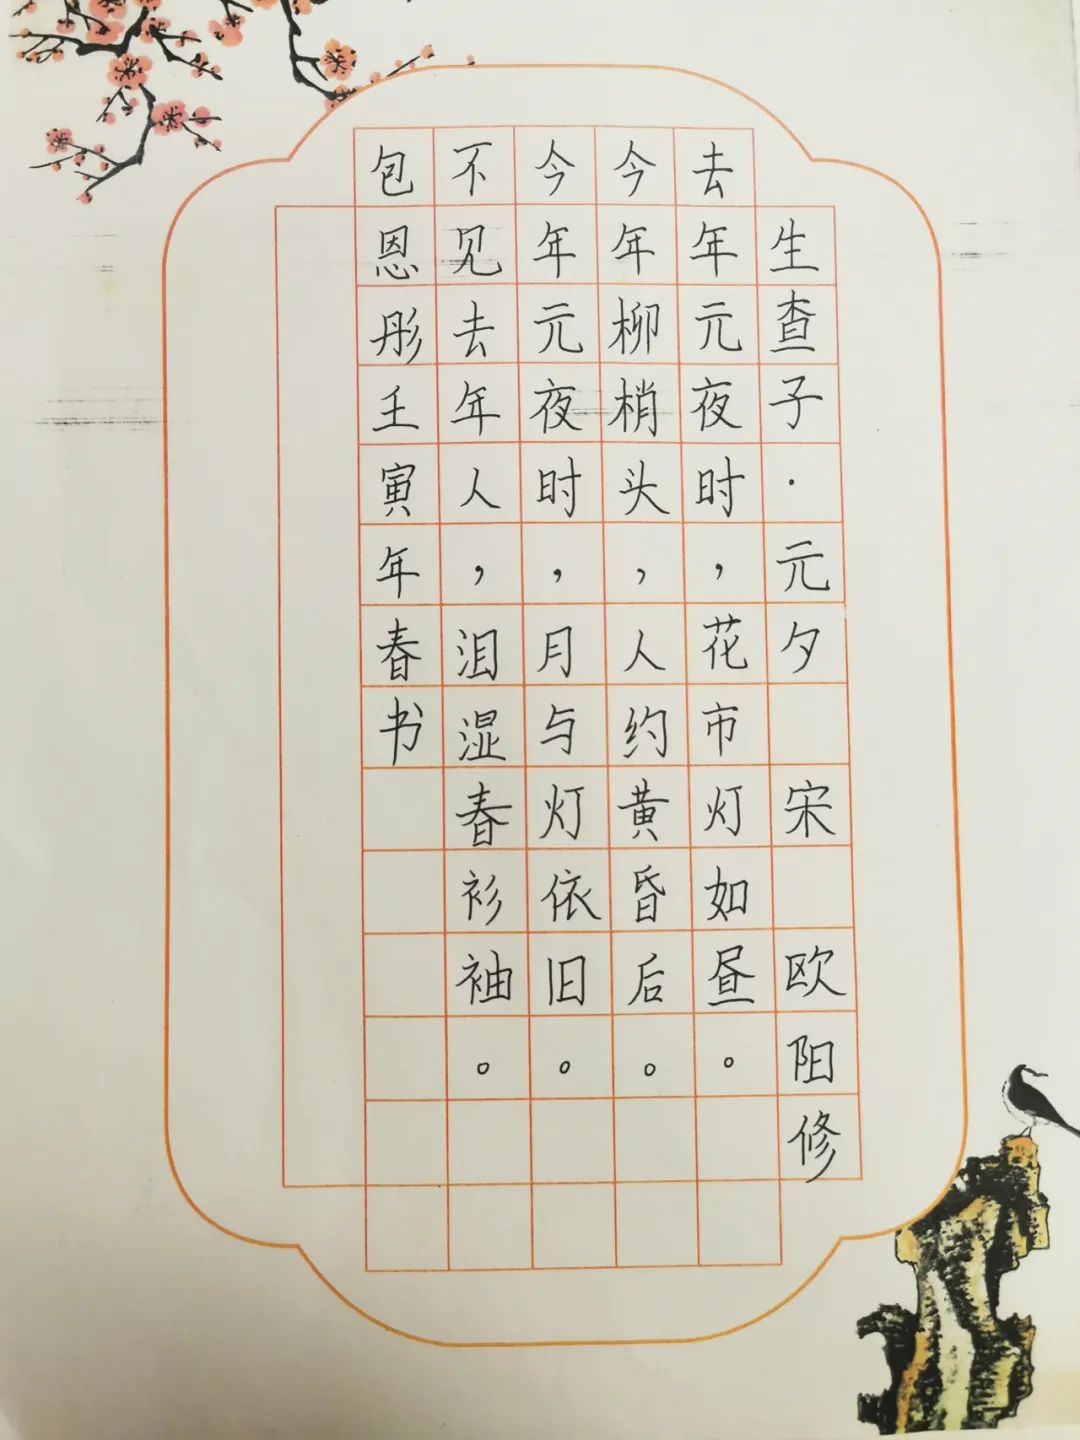 生查子·元夕 宋 欧阳修
去年元夜时，花市灯如昼。
今年柳梢头，人约黄昏后。
今年元夜时，月与灯依旧。
不见去年人，泪湿春衫袖。
包恩彤壬寅年春书